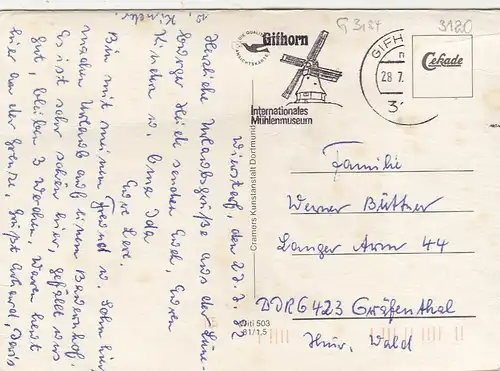 G 3137
3120
Gifhorn
Internationales
Mühlenmuseum
GIFH
28.7.
3
Cekade
Wierstorf, den 27.7.82
Herzliche Urlaubsgrüße aus der Lüne-
burger Heide senden Euch, Euren
Kindern u. Oma Ida
Eure Eere.
Bin mit meinem Freund u. Sohn hier
machen Urlaub auf einem Bauernhof.
Es ist sehr schön hier, gefällt uns
gut, bleiben 3 Wochen, waren heut
hier an der Grenze, grüßt Erhard, Doris
u. Kinder.
Cramers Kunstanstalt Dortmund
Witi 503
81/1,5
Familie
Werner Büttner
Langer Arm 44
DDR 6423 Gräfenthal
Thür. Wald